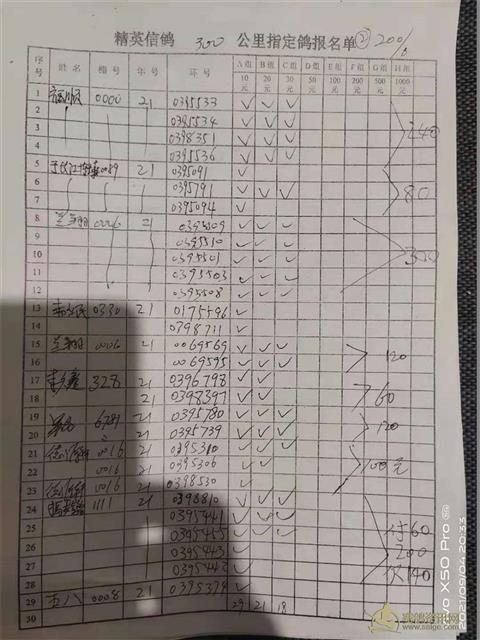 精英信鸽 300 公里指定鸽报名单 ② 200/8
序号 姓名 棚号 年号 环号 A组10元 B组20元 C组30元 D组50元 E组100元 F组200元 G组500元 H组1000元
1 0000 21 0395533 ✓ ✓ ✓
2 0395534 ✓ ✓ ✓
3 0398351 ✓ ✓ ✓
4 0395536 ✓ ✓ ✓
240
5 21 0395091 ✓
6 0395791 ✓ ✓ ✓
7 0395094 ✓
80
8 兰翔 0006 21 0395509 ✓ ✓ ✓
9 0395510 ✓ ✓ ✓
10 0395501 ✓ ✓ ✓
11 0395503 ✓ ✓ ✓
12 0395508 ✓ ✓ ✓
300
13 0330 21 0175596 ✓
14 0398711 ✓
15 兰翔 0006 21 0069569 ✓ ✓ ✓
16 0069595 ✓ ✓ ✓
120
17 328 21 0396798 ✓ ✓
18 21 0398397 ✓ ✓
60
19 21 0395780 ✓ ✓ ✓
20 21 0395739 ✓ ✓ ✓
120
21 0016 21 0395310 ✓ ✓ ✓
22 0016 21 0395306 ✓ ✓
23 0016 21 0398530 ✓
100元
24 1111 21 0398810 ✓ ✓ ✓
25 0395441 ✓ ✓ ✓
26 0395455 ✓ ✓ ✓
27 0395443 ✓
28 0395442 ✓
付60
200
欠140
29 五八 0008 21 0395374 ✓
30 29 21 18
vivo X50 Pro
2021/09/04 20:33
赛鸽资讯网
www.saige.com